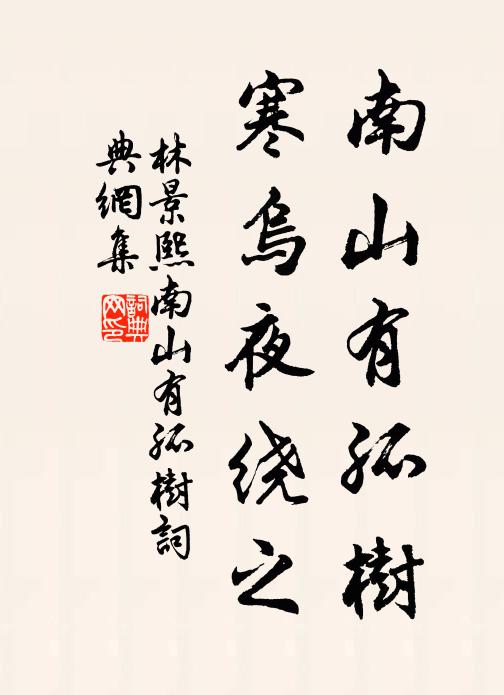 南山有孤樹
寒烏夜绕之
林景熙南山有孤樹詞
典網集
詞典网印